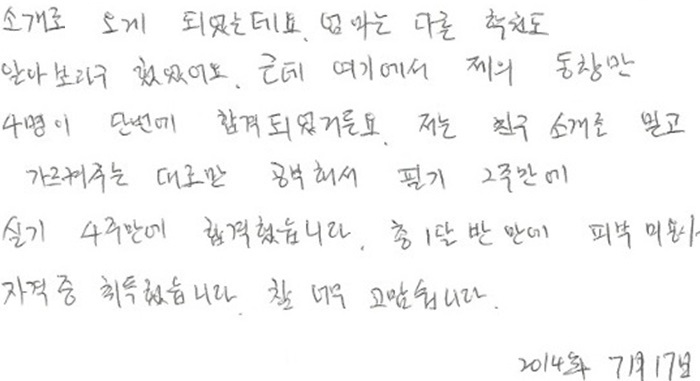 소개로 오게 되었는데요. 엄마는 다른 학원도
알아보라구 했었어요. 근데 여기에서 제의 동창만
4명이 단번에 합격되었거든요. 저는 친구 소개로 믿고
가르켜주는 대로만 공부해서 필기 2주만에
실기 4주만에 합격했습니다. 총 1달 반 만에 피부 미용사
자격증 취득했습니다. 참 너무 고맙습니다.
2014年 7月 17日